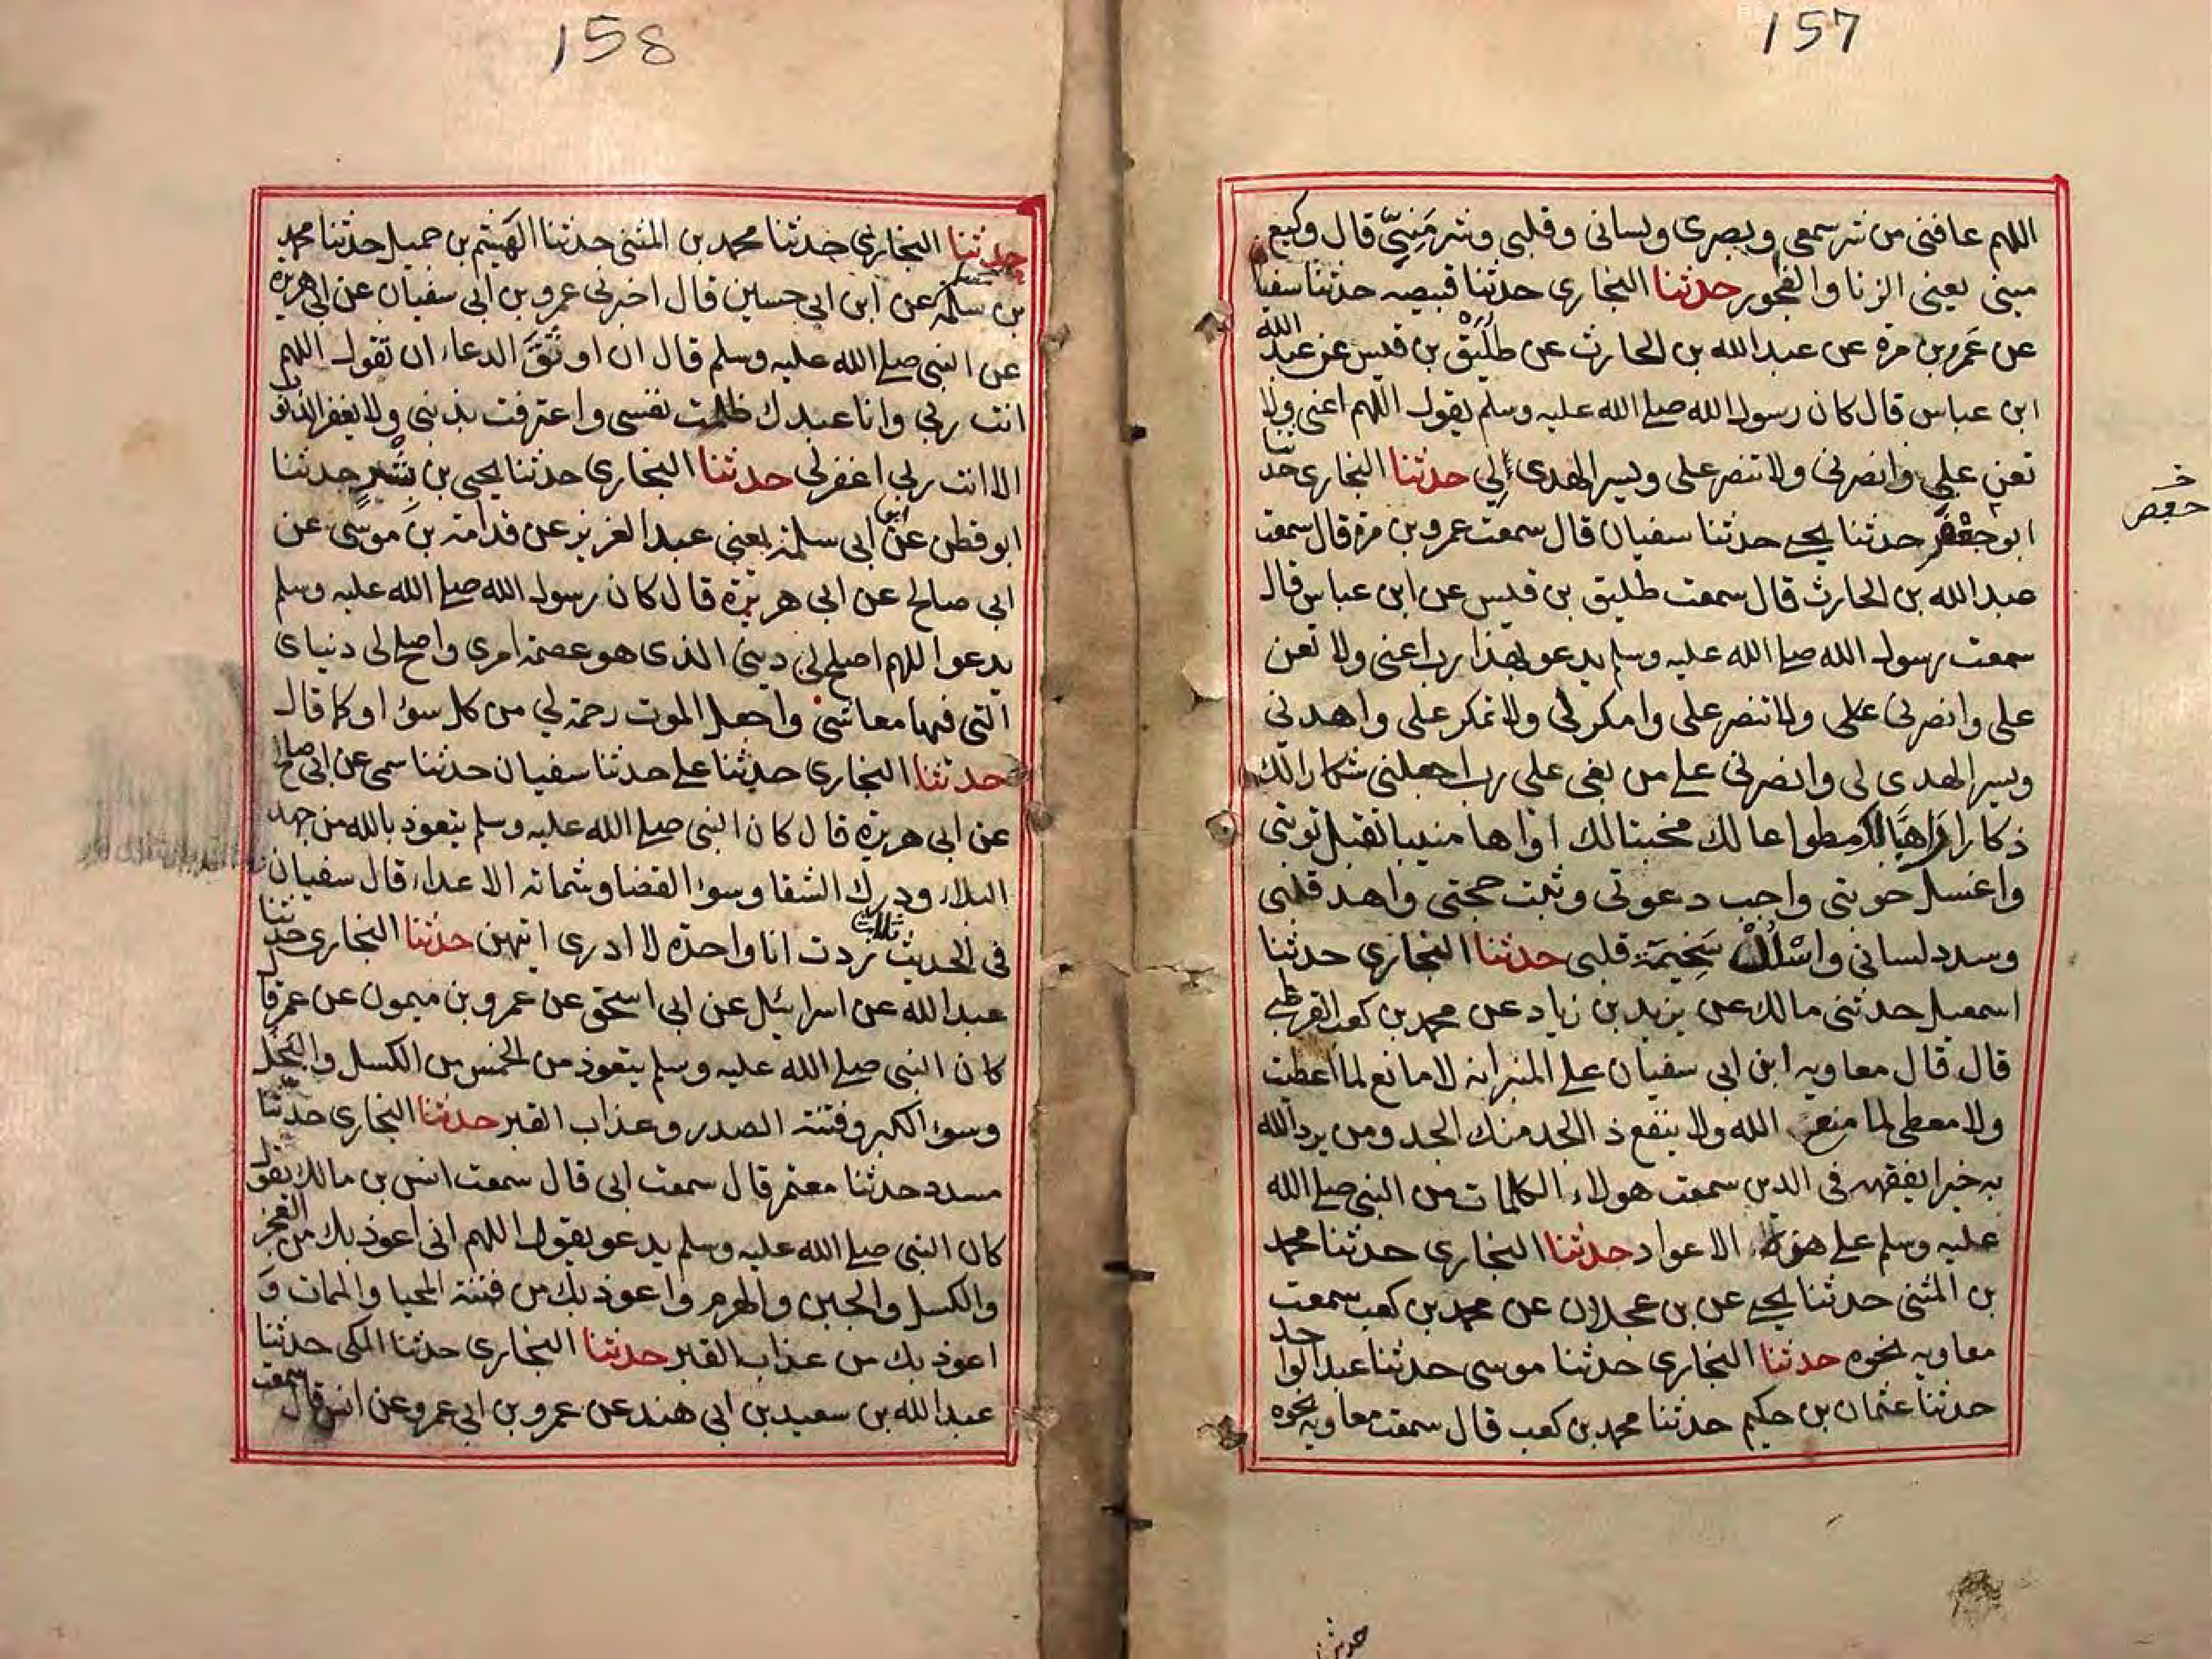 157
اللهم عافني من شر سمعي وبصري ولساني وقلبي وشر مَنِيّي قال وكيع
مني يعني الزنا والفجور حدثنا البخاري حدثنا قبيصه حدثنا سفيا
عن عمرو بن مرة عن عبدالله بن الحارث عن طُلَيْق بن قيس عن عبدالله
ابن عباس قال كان رسول الله صلى الله عليه وسلم يقول اللهم اعني ولا
تعن علي وانصرني ولا تنصر على ويسر الهدى لي حدثنا البخاري حدثنا
ابو حدثنا يحيى حدثنا سفيان قال سمعت عمرو بن مرة قال سمعت
عبدالله بن الحارث قال سمعت طليق بن قيس عن ابن عباس قال
سمعت رسول الله صلى الله عليه وسلم يدعو بهذا رب اعني ولا تعن
علي وانصرني على ولا تنصر علي وامكر لي ولا تمكر علي واهدني
ويسر الهدى لي وانصرني على من بغى علي رب اجعلني شكارا لك
ذكارا راهبا لك مطواعا لك مخبتا لك اواها منيبا تقبل توبتي
واغسل حوبتي واجب دعوتي وثبت حجتي واهد قلبي
وسدد لساني واسْلُلْ سَخِيمَة قلبي حدثنا البخاري حدثنا
اسمعيل حدثني مالك عن يزيد بن زياد عن محمد بن كعب القرظي
قال قال معاويه ابن ابي سفيان على المنبر انه لا مانع لما اعطيت
ولا معطي لما منع الله ولا ينفع ذ الجد منك الجد ومن يرد الله
به خيرا يفقهه في الدين سمعت هولاء الكلمات من النبي صلى الله
عليه وسلم على الاعواد حدثنا البخاري حدثنا محمد
بن المثنى حدثنا يحيى عن بن عجلان عن محمد بن كعب سمعت
معاويه نحوه حدثنا البخاري حدثنا موسى حدثنا عبد الواحد
حدثنا عثمان بن حكيم حدثنا محمد بن كعب قال سمعت معاويه نحوه
حفص
حدثنا
158
حدثنا البخاري حدثنا محمد بن المثنى حدثنا الهَيْثم بن جميل حدثنا محمد
بن عن ابن ابي حسين قال اخبرني عمرو بن ابي سفيان عن ابي هريرة
عن النبي صلى الله عليه وسلم قال ان اوثَقَ الدعاء ان تقول اللهم
انت ربي وانا عبدك ظلمت نفسي واعترفت بذنبي ولا يغفر الذنوب
الا انت ربي اغفر لي حدثنا البخاري حدثنا يحيى بن بشر حدثنا
ابو قطن عن ابن ابي سلمة يعني عبد العزيز عن قدامة بن موسى عن
ابي صالح عن ابي هريرة قال كان رسول الله صلى الله عليه وسلم
يدعوا اللهم اصلح لي ديني الذى هو عصمة امرى واصلح لي دنياى
التي فيها معاشي واجعل الموت رحمة لي من كل سوء او كما قال
حدثنا البخاري حدثنا علي حدثنا سفيان حدثنا سمي عن ابي صالح
عن ابي هريرة قال كان النبي صلى الله عليه وسلم يتعوذ بالله من جهد
البلاء ودرك الشقا وسوء القضا وشماته الاعداء قال سفيان
في الحديث ثلاث زدت انا واحدة لا ادرى ايتهن حدثنا البخاري حدثنا
عبد الله عن اسرائيل عن ابي اسحق عن عمرو بن ميمون عن عمر قا
كان النبي صلى الله عليه وسلم يتعوذ من الخمس من الكسل والبخل
وسوء الكبر وفتنة الصدر وعذاب القبر حدثنا البخاري حدثنا
مسدد حدثنا معتمر قال سمعت ابي قال سمعت انس بن مالك يقول
كان النبي صلى الله عليه وسلم يدعو يقول اللهم اني اعوذ بك من العجز
والكسل والجبن والهرم واعوذ بك من فتنة المحيا والممات و
اعوذ بك من عذاب القبر حدثنا البخاري حدثنا المكي حدثنا
عبد الله بن سعيد بن ابي هند عن عمرو بن ابي عمرو عن انس قال سمعت